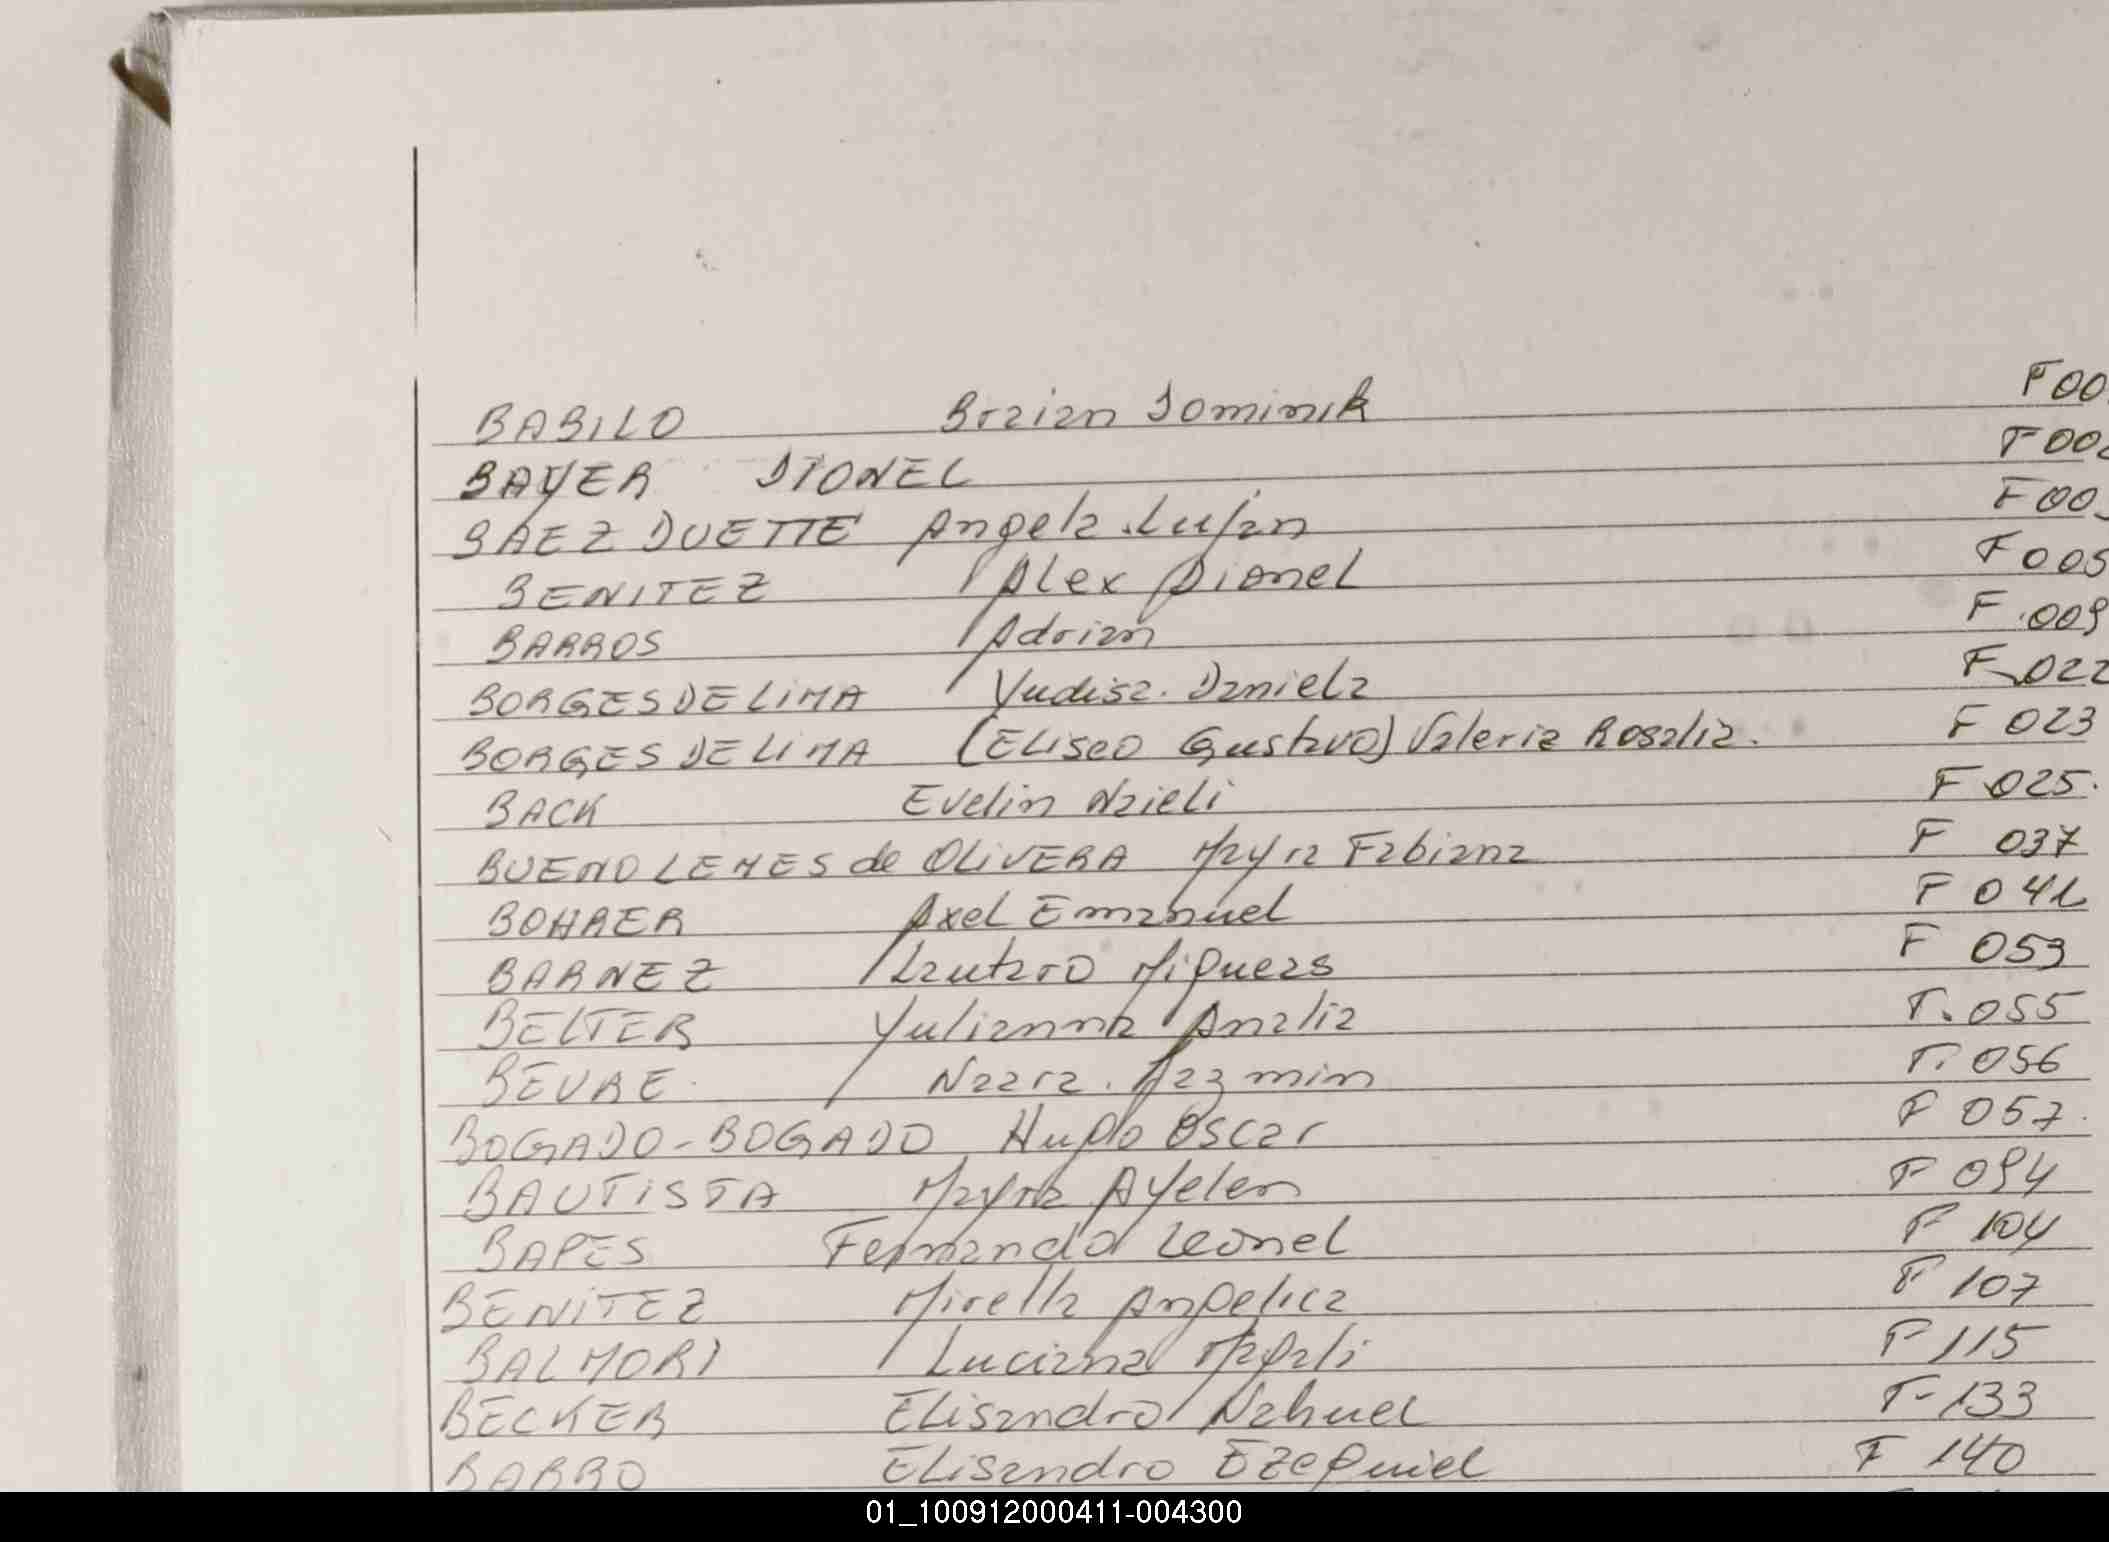 BABILO Braian Dominik F00
BAYER DIONEL F00
BAEZ DUETTE Angela Lujan F00
BENITEZ Alex Dionel F005
BARROS Adrian F.009
BORGES DE LIMA Yudisa. Daniela F.022
BORGES DE LIMA (Eliseo Gustavo) Valeria Rosalia. F 023
BACK Evelin Naieli F 025.
BUENO LEMES de OLIVERA Mayra Fabiana F 037
BOHRER Axel Emanuel F 041
BARNEZ Lautaro Migueas F 053
BELTER Yulianna Analia F. 055
BEURE. Naara. Jazmin F. 056
BOGADO-BOGADO Hugo Oscar F 057.
BAUTISTA Mayra Ayelen F 094
BAPES Fernando Leonel F 104
BENITEZ Mirella Angelica F 107
BALMORI Luciana Magali F 115
BECKER Elisandro Nahuel F-133
BARRO Elisandro Ezequiel F 140
01_100912000411-004300